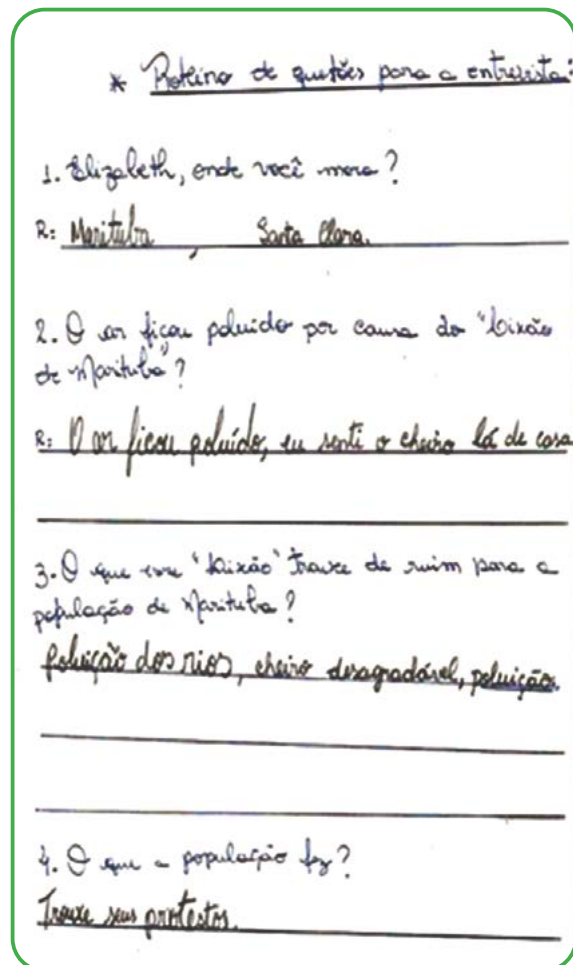 * Roteiro de questões para a entrevista:
1. Elizabeth, onde você mora?
R: Marituba, Santa Clara.
2. O ar ficou poluído por causa do "Lixão
de Marituba"?
R: O ar ficou poluído, eu senti o cheiro lá de casa
3. O que esse "Lixão" trouxe de ruim para a
população de Marituba?
Poluição dos rios, cheiro desagradável, poluição.
4. O que a população fez?
Trouxe seus protestos.